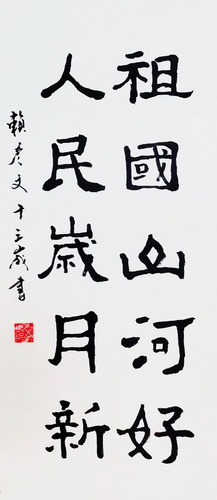 祖國山河好
人民歲月新
賴彦文十三歲書